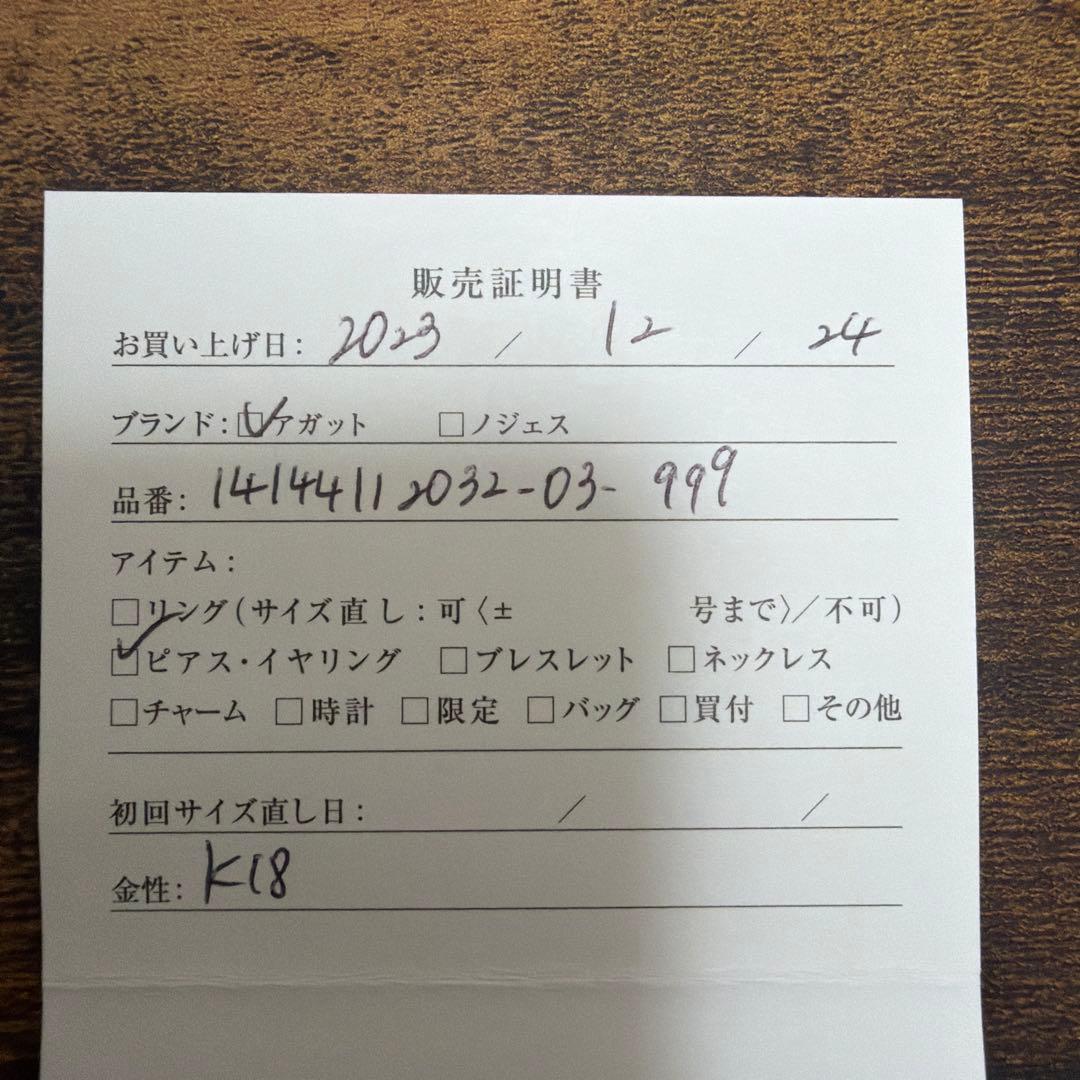 販売証明書
お買い上げ日: 2023 / 12 / 24
ブランド: ☑アガット □ノジェス
品番: 14144112032-03-999
アイテム:
□リング(サイズ直し:可〈± 号まで〉/不可)
☑ピアス・イヤリング □ブレスレット □ネックレス
□チャーム □時計 □限定 □バッグ □買付 □その他
初回サイズ直し日: / /
金性: K18